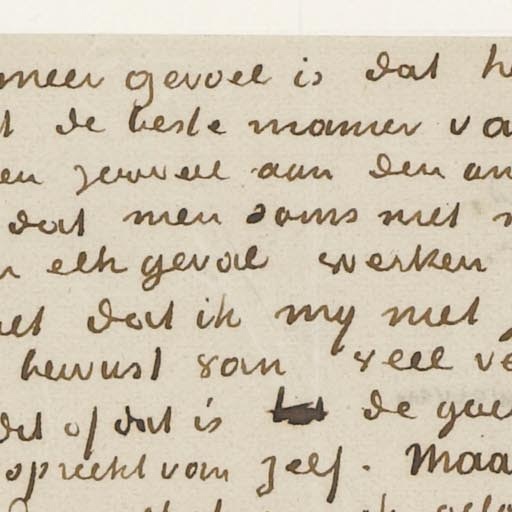 meer gevoel is dat h
t de beste manier va
en zuwel aan den an
dat men soms niet
n elk geval werken
et dat ik my niet
bewust van veel ve
dit of dat is de goe
spreekt van zelf. Maa